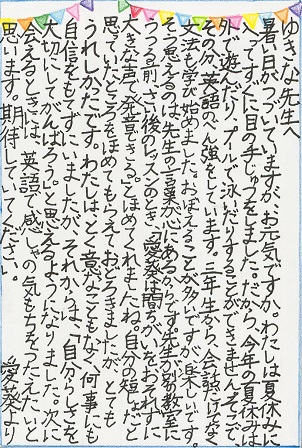 ゆきな先生へ
暑い日がつづいていますが、お元気ですか。わたしは夏休みに
入ってすぐに目の手じゅつをしました。だから、今年の夏休みは
外で遊んだり、プールで泳いだりすることができません。そこで
その分、英語の勉強をしています。三年生から、会話だけでなく
文法も学び始めました。おぼえることが多いですが楽しいです。
そう思えるのは、先生の言葉が心にあるからです。先生が別の教室に
うつる前、さい後のレッスンのとき、「愛発は間ちがいをおそれずに
大きな声で発言できる。」とほめてくれましたね。自分の短しょだと
思っていたところをほめてもらえておどろきましたが、とても
うれしかったです。わたしはとく意なこともなく、何事にも
自信をもてずにいましたが、それからは、「自分らしさを
大切にしてがんばろう。」と思えるようになりました。次に
会えるときには、英語で感しゃの気もちをつたえたいと
思います。期待していてください。
愛発より